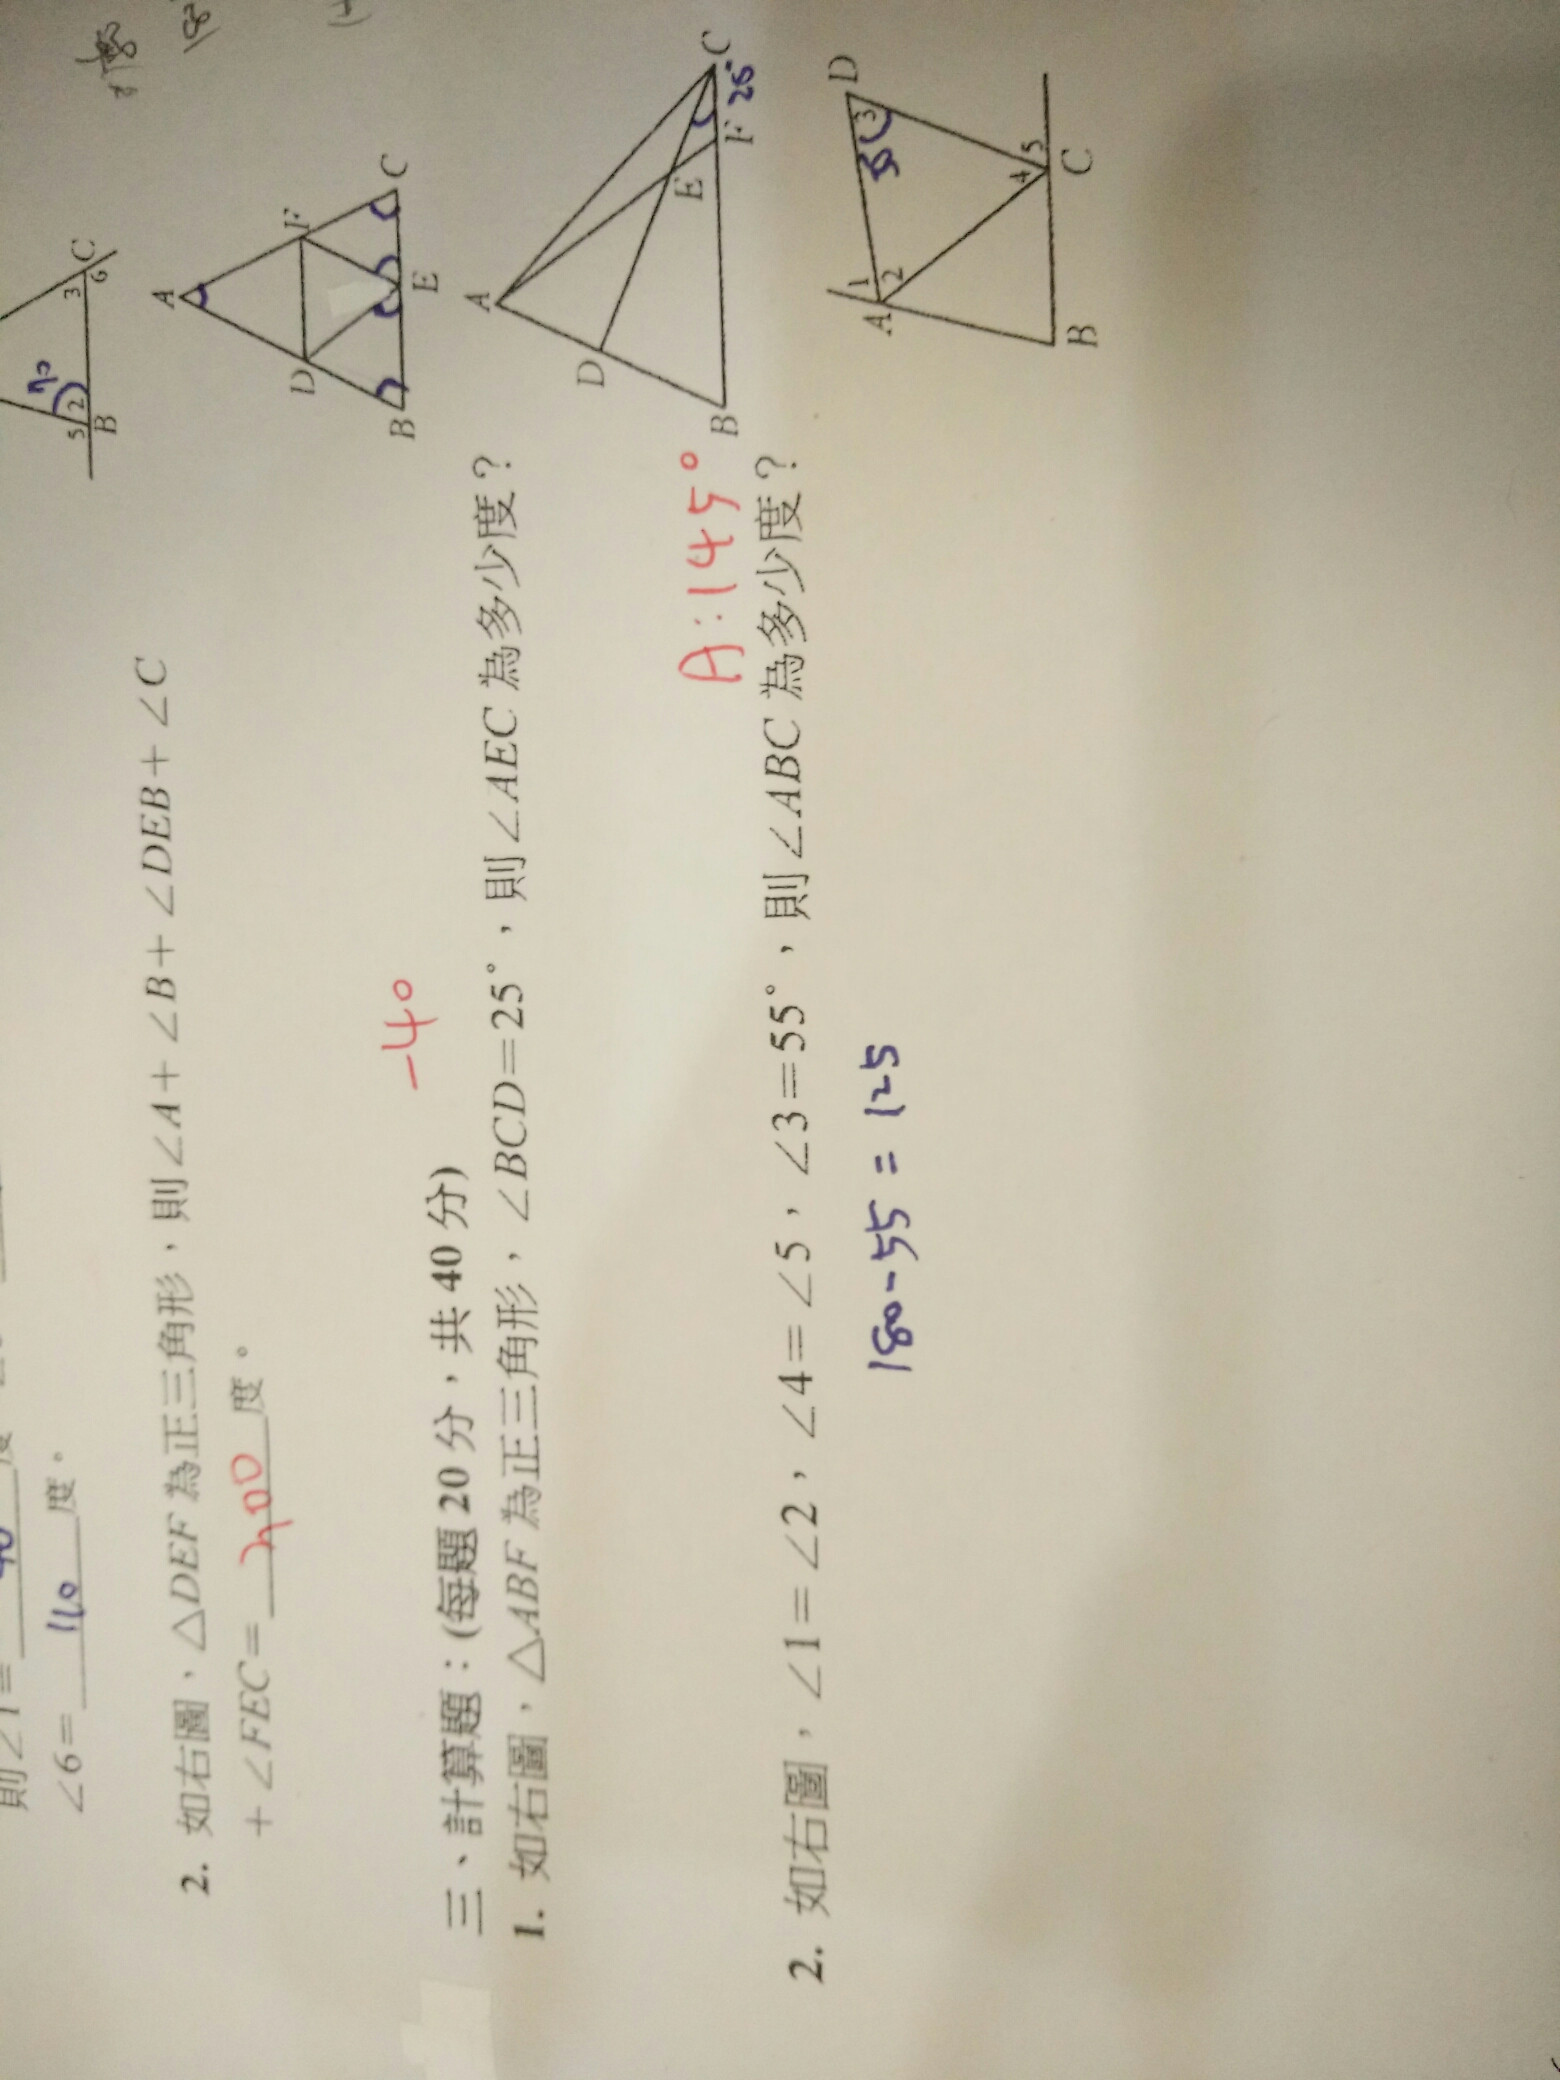 則∠1=
∠6=110度。
2. 如右圖，△DEF為正三角形，則∠A+∠B+∠DEB+∠C
+∠FEC=度。
-40
三、計算題：(每題20分，共40分)
1. 如右圖，△ABF為正三角形，∠BCD=25°，則∠AEC為多少度？
A:145°
2. 如右圖，∠1=∠2，∠4=∠5，∠3=55°，則∠ABC為多少度？
180-55=125
70
5
2
3
6
B
C
A
D
F
B
E
C
A
D
E
B
F
C
25°
A
1
2
D
3
4
5
B
C